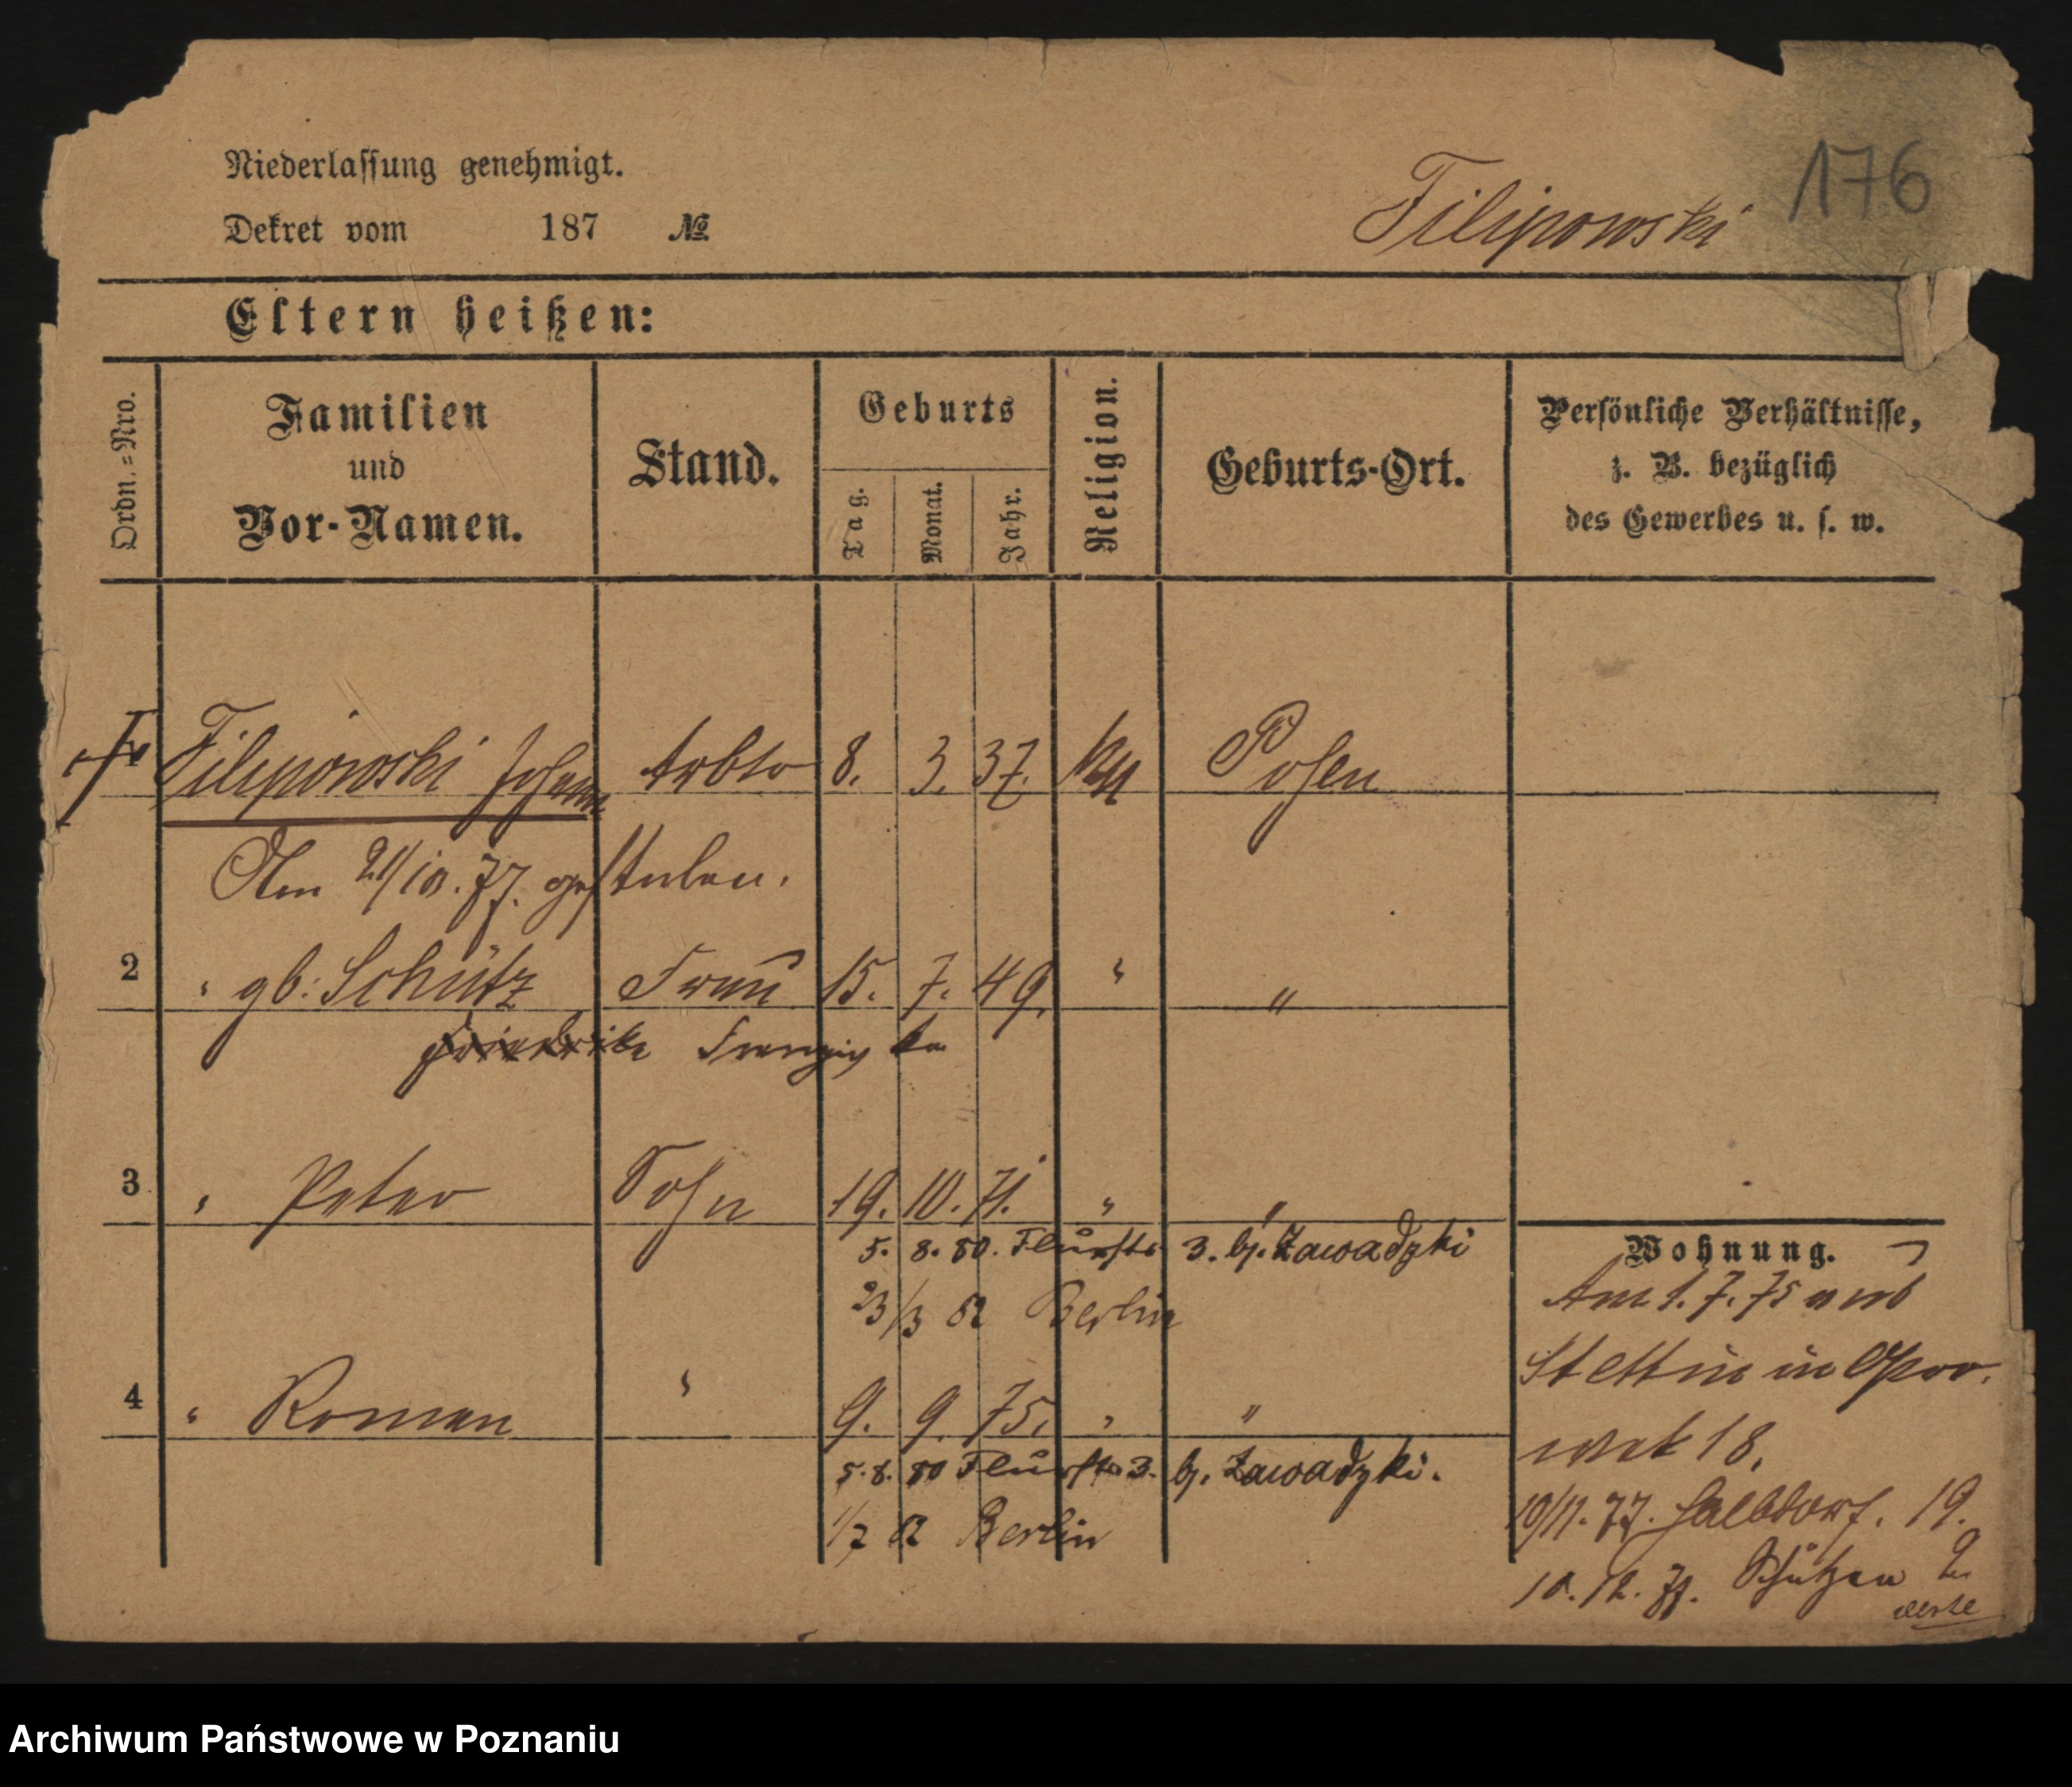 176
Niederlassung genehmigt.
Filipowski
Dekret vom 187 №
Eltern heißen:
Ordn.=Nro.
Familien und Vor-Namen.
Stand.
Geburts
Tag.
Monat.
Jahr.
Religion.
Geburts-Ort.
Persönliche Verhältnisse,
z. B. bezüglich
des Gewerbes u. s. w.
Filipowski Johann Arbtr 8. 3. 37. Posen
Am 21/10. 77. gestorben.
2 " gb: Schütz Frau 15. 7. 49. " "
Friederike Franziska
3 " Peter Sohn 19. 10. 71. " "
5. 8. 80. 3. bj. Zawadzki
23/3 82 Berlin
4 " Roman " 9. 9. 75. " "
5. 8. 80 3. bj. Zawadzki.
1/7 82 Berlin
Wohnung.
Am 1. 7. 75 
Stettin in
18.
10/11. 77. Halbdorf. 19.
10. 12. Schützen 2